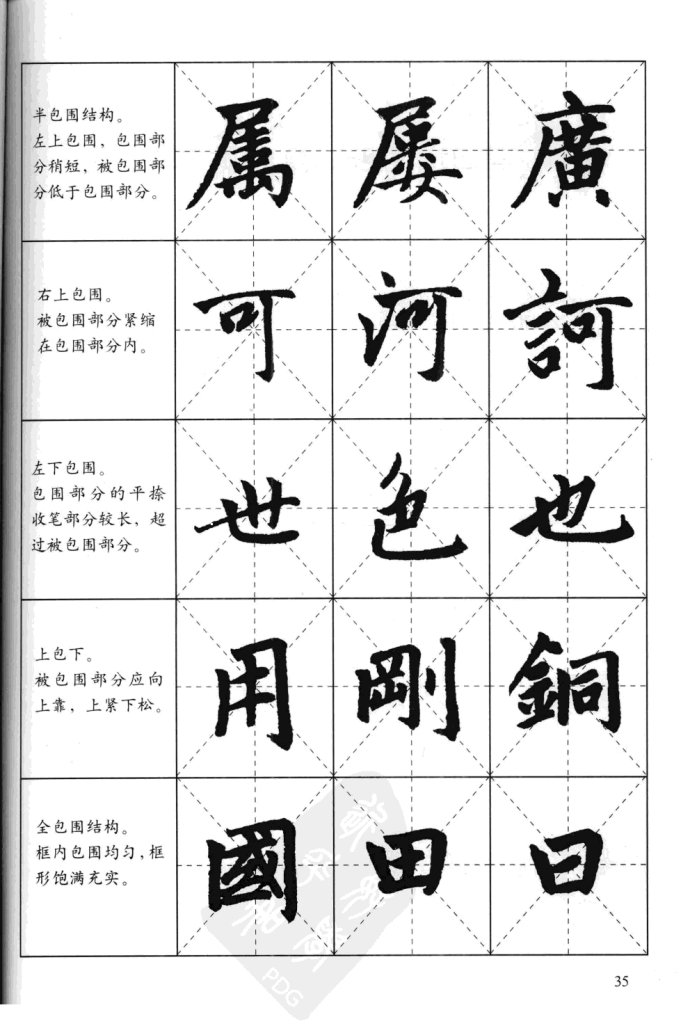 半包围结构。
左上包围，包围部
分稍短，被包围部
分低于包围部分。
属 屡 廣
右上包围。
被包围部分紧缩
在包围部分内。
可 河 訶
左下包围。
包围部分的平捺
收笔部分较长，超
过被包围部分。
世 色 也
上包下。
被包围部分应向
上靠，上紧下松。
用 剛 銅
全包围结构。
框内包围均匀，框
形饱满充实。
國 田 日
PDG
35